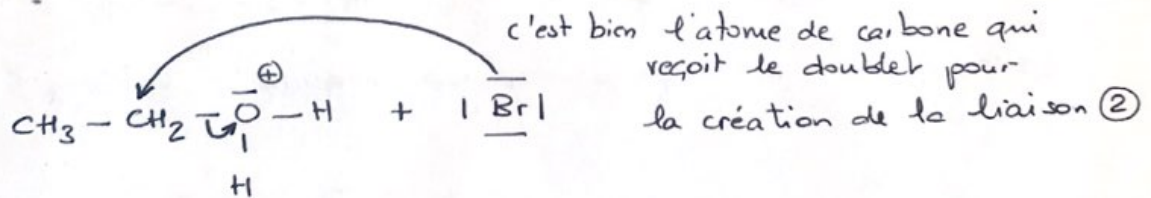 c'est bien l'atome de carbone qui
reçoit le doublet pour
la création de la liaison ②
⊕
CH₃ – CH₂ – O – H + | Br |
H